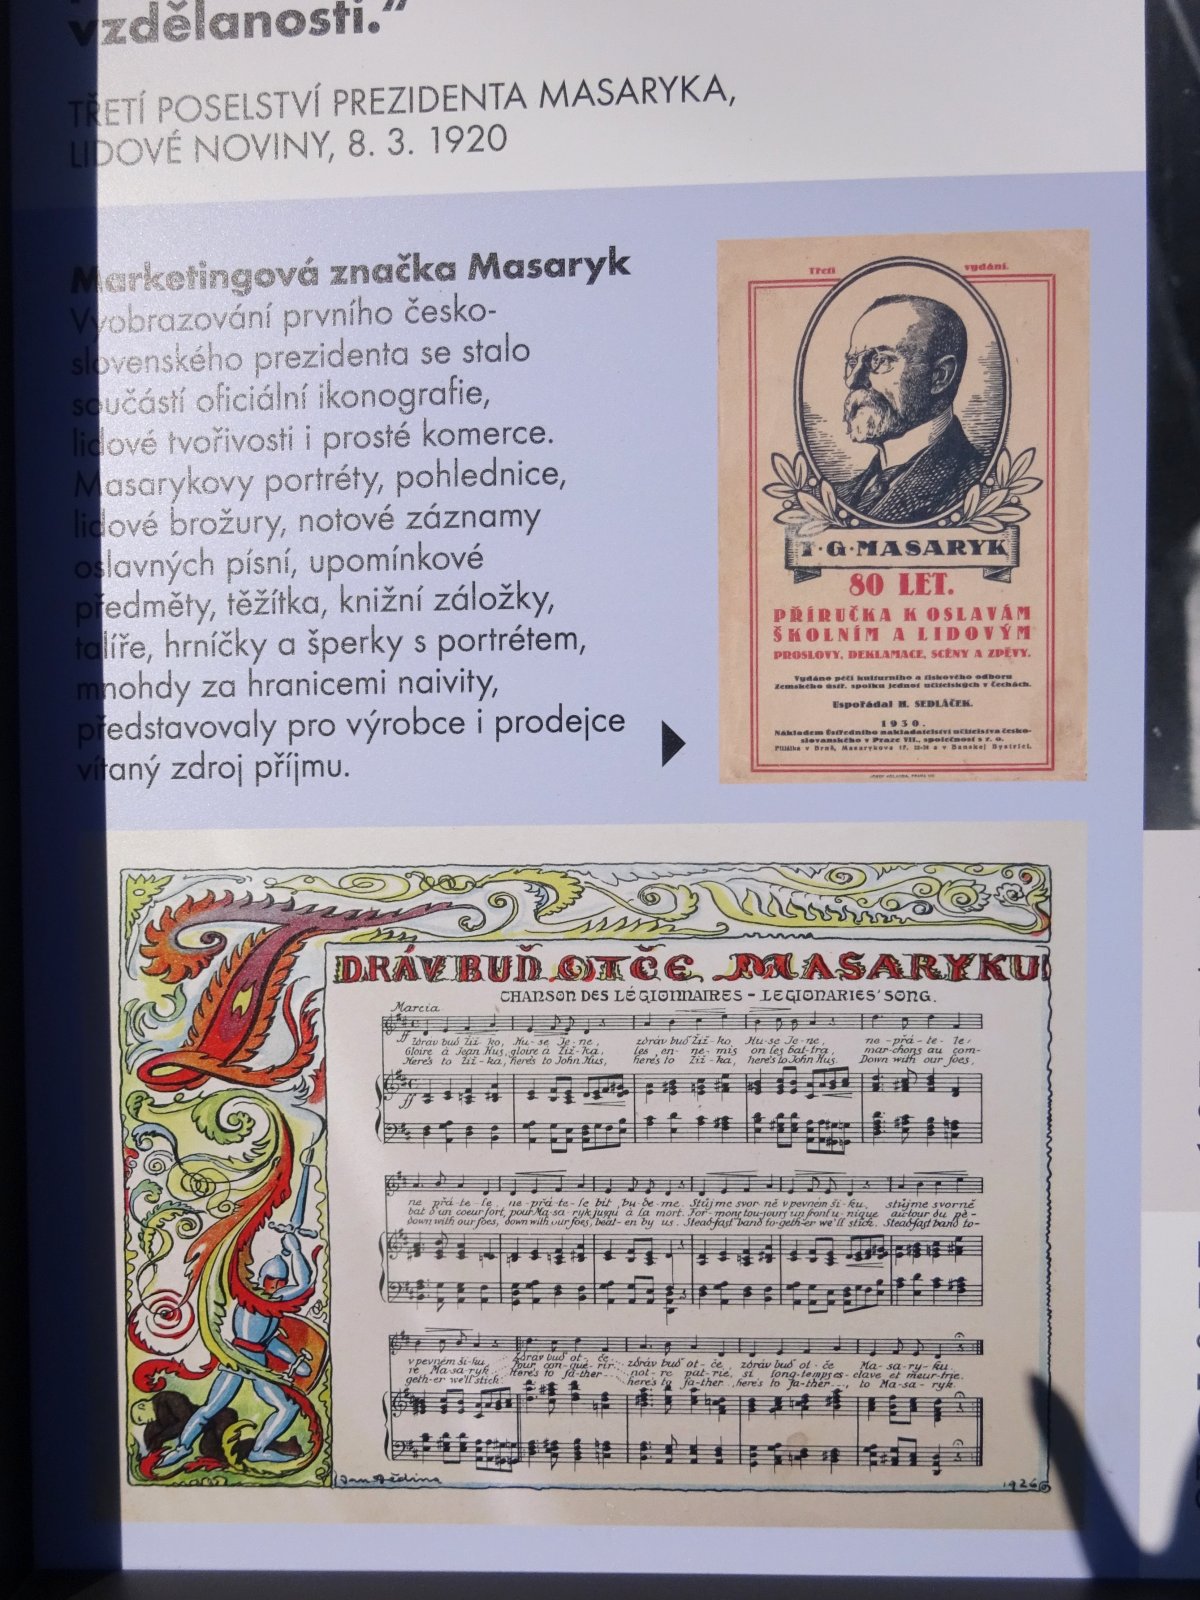 vzdělanosti.“
TŘETÍ POSELSTVÍ PREZIDENTA MASARYKA,
LIDOVÉ NOVINY, 8. 3. 1920
Marketingová značka Masaryk
Vyobrazování prvního česko-
slovenského prezidenta se stalo
součástí oficiální ikonografie,
lidové tvořivosti i prosté komerce.
Masarykovy portréty, pohlednice,
lidové brožury, notové záznamy
oslavných písní, upomínkové
předměty, těžítka, knižní záložky,
talíře, hrníčky a šperky s portrétem,
mnohdy za hranicemi naivity,
představovaly pro výrobce i prodejce
vítaný zdroj příjmu.
Třetí vydání.
T·G·MASARYK
80 LET.
PŘÍRUČKA K OSLAVÁM
ŠKOLNÍM A LIDOVÝM
PROSLOVY, DEKLAMACE, SCÉNY A ZPĚVY.
Vydáno péčí kulturního a tiskového odboru
Zemského ústř. spolku jednot učitelských v Čechách.
Uspořádal H. SEDLÁČEK.
1930.
Nákladem Ústředního nakladatelství učitelstva česko-
slovanského v Praze VII., společnost s r. o.
Filiálka v Brně, Masarykova tř. a v Banskej Bystrici.
ZDRÁV BUĎ OTČE MASARYKU!
CHANSON DES LÉGIONNAIRES – LEGIONARIES' SONG.
Marcia
Zdráv buď Žiž-ko, Hu-se Je-ne, zdráv buď Žiž-ko Hu-se Je-ne, ne-přá-te-le,
Gloire à Jean Hus, gloire à Žiž-ka, les en-ne-mis on les bat-tra, mar-chons au com-
Here's to Žiž-ka, here's to John Hus, here's to Žiž-ka, here's to John Hus. Down with our foes,
ne přá-te-le ne-přá-te-le bít bu-de-me. Stůjme svor-ně v pevném ši-ku, stůjme svorně
bat d'un coeur fort, pour Ma-sa-ryk jusqu' à la mort. For-mons toujours un front u-nique autour du pè-
down with our foes, down with our foes, beat-en by us. Steadfast band to-geth-er we'll stick. Steadfast band to-
v pevném ši-ku, Zdráv buď ot-če, zdráv buď ot-če, zdráv buď ot-če Ma-sa-ry-ku.
re Ma-sa-ryk. Pour con-qué-rir not-re pat-rie, si long-temps es-clave et meur-trie.
geth-er we'll stick. Here's to fa-ther here's to fa-ther, here's to fa-ther, to Ma-sa-ryk.
Jan Dědina 1926